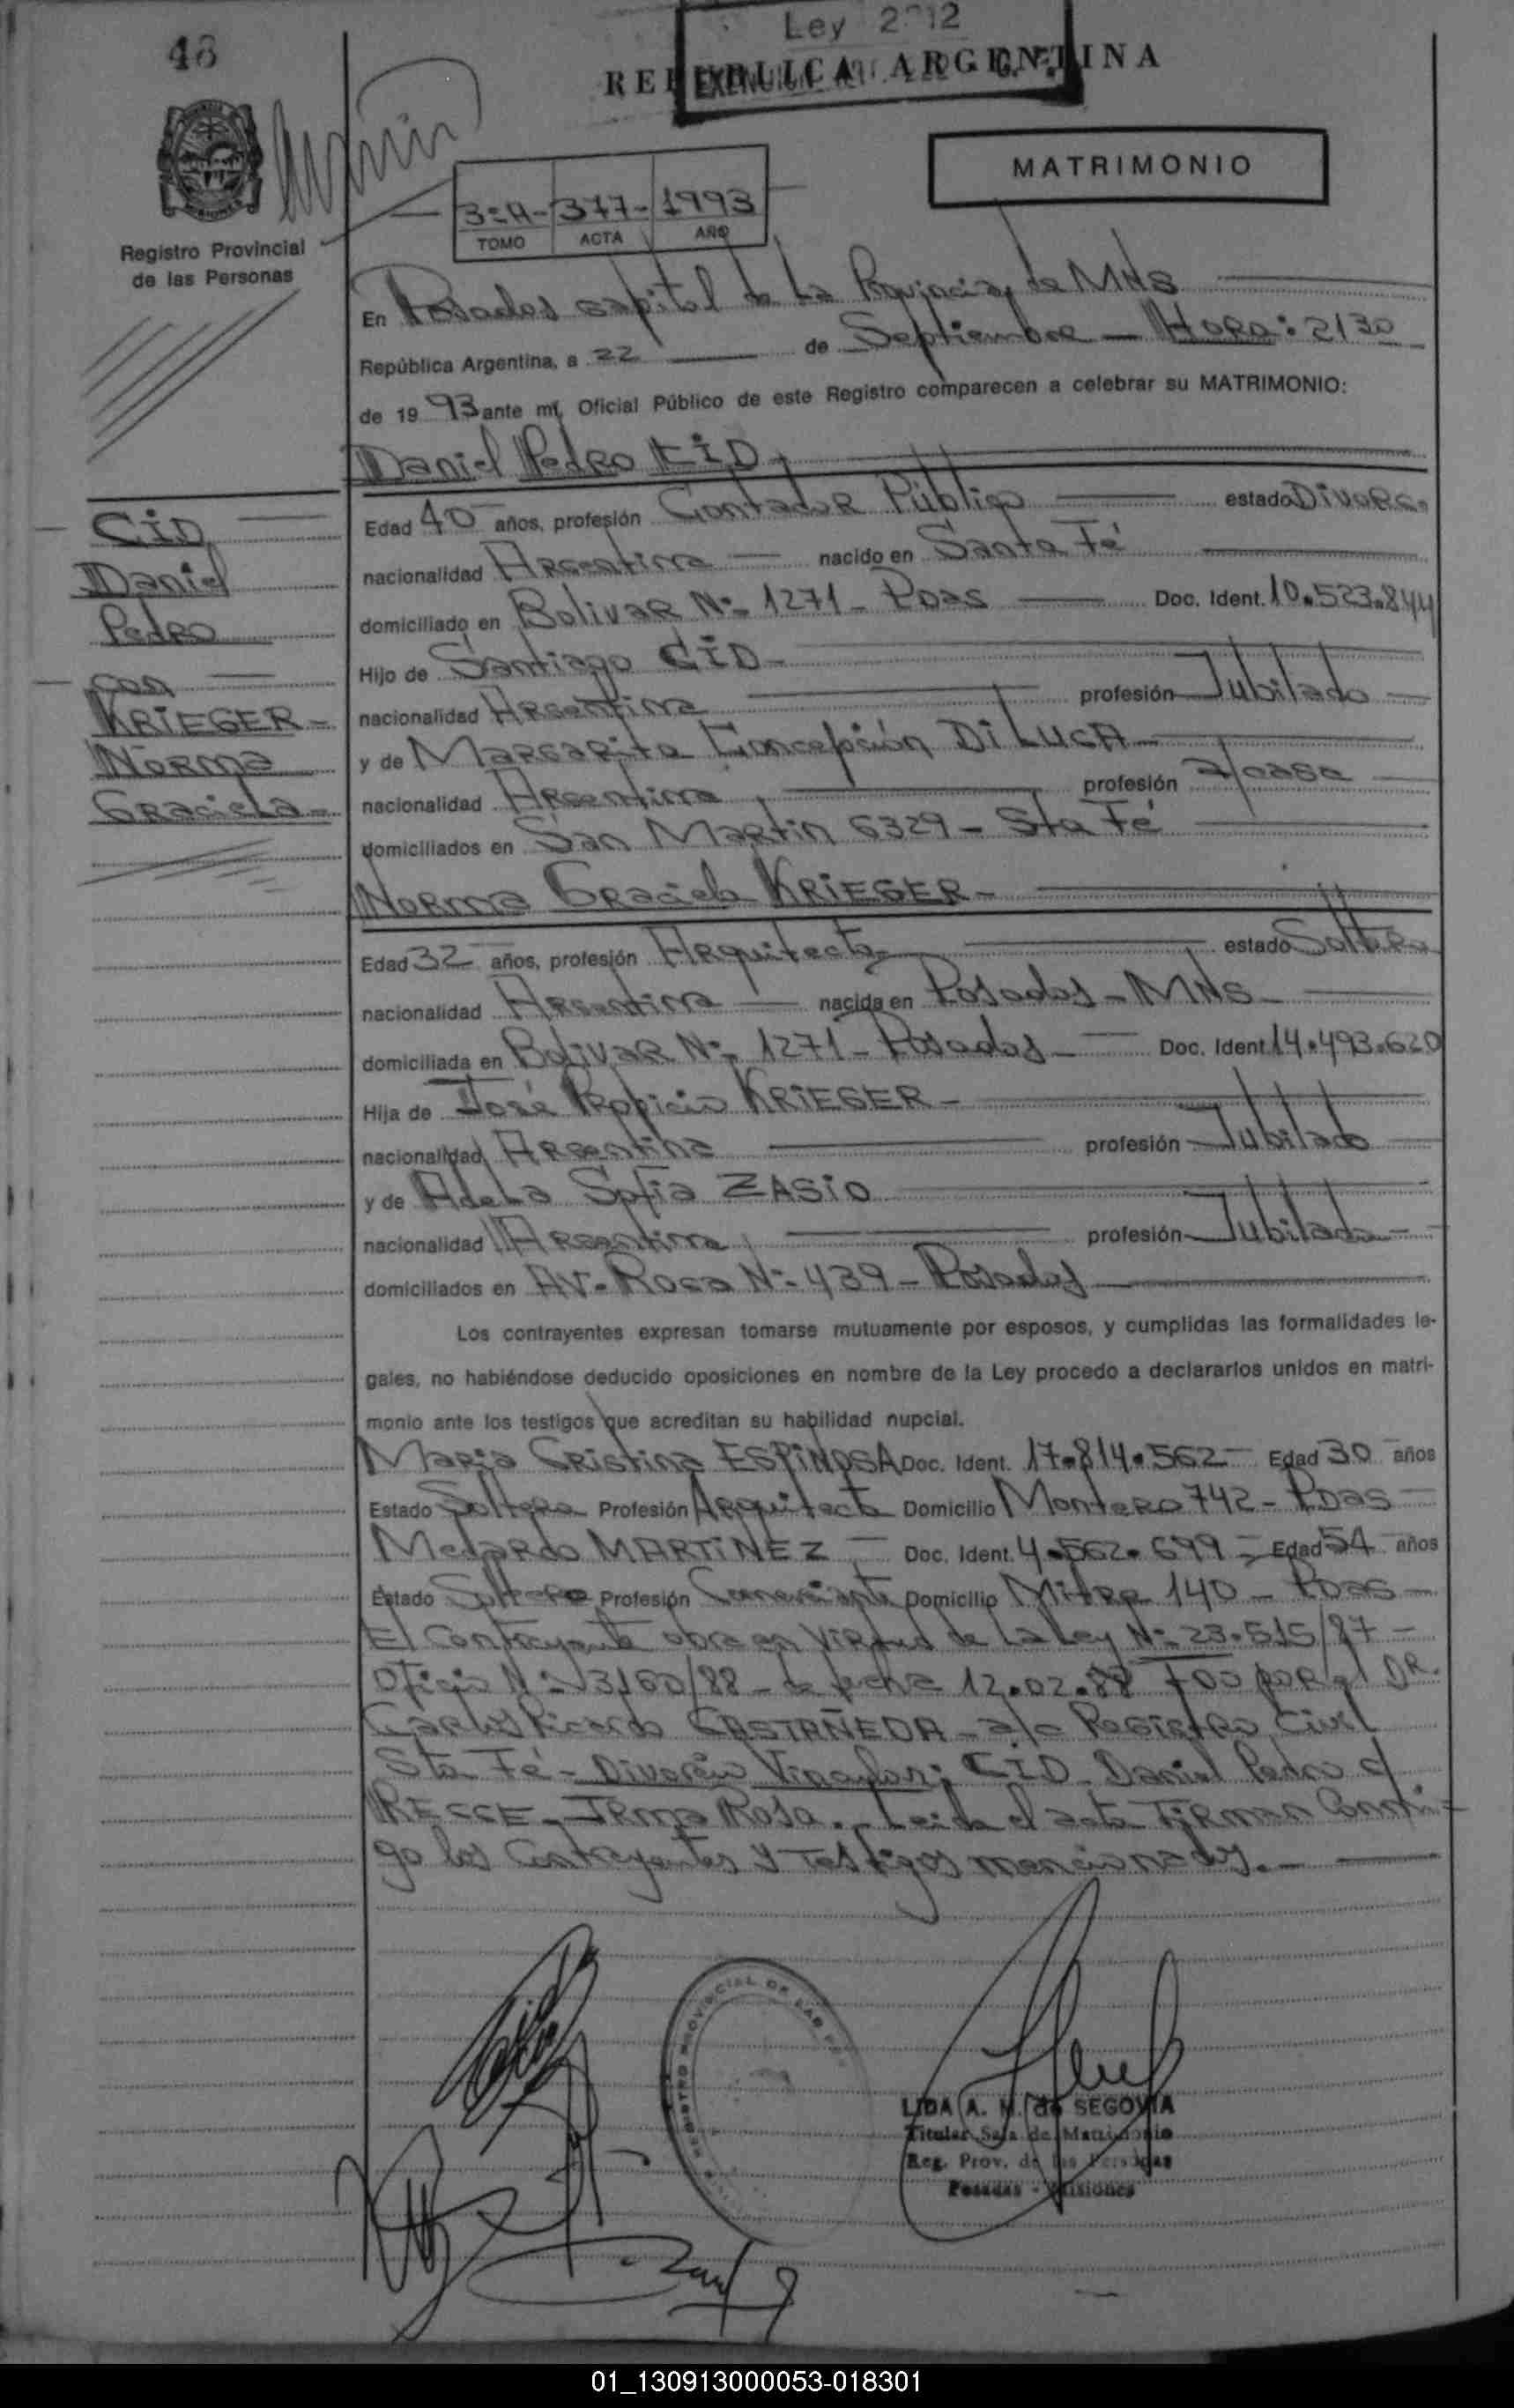 48
Ley 2312
REPUBLICA ARGENTINA
MATRIMONIO
3=A- 377- 1993
TOMO ACTA AÑO
Registro Provincial
de las Personas
En Posadas capital de La Provincia de MNS
República Argentina, a 22 de Septiembre - Hora: 2130
de 19 93 ante mí, Oficial Público de este Registro comparecen a celebrar su MATRIMONIO:
Daniel Pedro CID
Edad 40 años, profesión Contador Público estado Divorc.
nacionalidad Argentina nacido en Santa Fé
domiciliado en Bolivar Nº 1271 - Pdas Doc. Ident. 10.523.844
Hijo de Santiago CID -
nacionalidad Argentina profesión Jubilado
y de Margarita Concepción Di LUCA
nacionalidad Argentina profesión a/casa
domiciliados en San Martin 6329 - Sta Fé
Norma Graciela KRIEGER -
Edad 32 años, profesión Arquitecta estado Soltera
nacionalidad Argentina nacida en Posadas - MNS
domiciliada en Bolivar Nº 1271 - Posadas - Doc. Ident. 14.493.620
Hija de José Propicio KRIEGER -
nacionalidad Argentina profesión Jubilado
y de Adela Sofia ZASIO
nacionalidad Argentina profesión Jubilada
domiciliados en Av. Roca Nº 439 - Posadas
Los contrayentes expresan tomarse mutuamente por esposos, y cumplidas las formalidades le-
gales, no habiéndose deducido oposiciones en nombre de la Ley procedo a declararlos unidos en matri-
monio ante los testigos que acreditan su habilidad nupcial.
Maria Cristina ESPINOSA Doc. Ident. 17.814.562 - Edad 30 años
Estado Soltera Profesión Arquitecta Domicilio Montero 742 - Pdas
Medardo MARTINEZ - Doc. Ident. 4.562.699 - Edad 54 años
Estado Soltero Profesión Comerciante Domicilio Mitre 140 - Pdas
El Contrayente obra en Virtud de La Ley Nº 23.515/87 -
Oficio Nº 3160/88 - de fecha 12.02.88 FDO por el DR.
Carlos Ricardo CASTAÑEDA - a/c Registro Civil
Sta Fé - Divorcio Vincular: CID - Daniel Pedro c/
RECCE - Irma Rosa. - Leida el acta Firman Conmi-
go los Contrayentes y Testigos mencionados. -
CID
Daniel
Pedro
con
KRIEGER -
Norma
Graciela -
REGISTRO PROVINCIAL DE LAS PER
LIDA A. M. de SEGOVIA
Titular Sala de Matrimonio
Reg. Prov. de las Personas
Posadas - Misiones
01_130913000053-018301